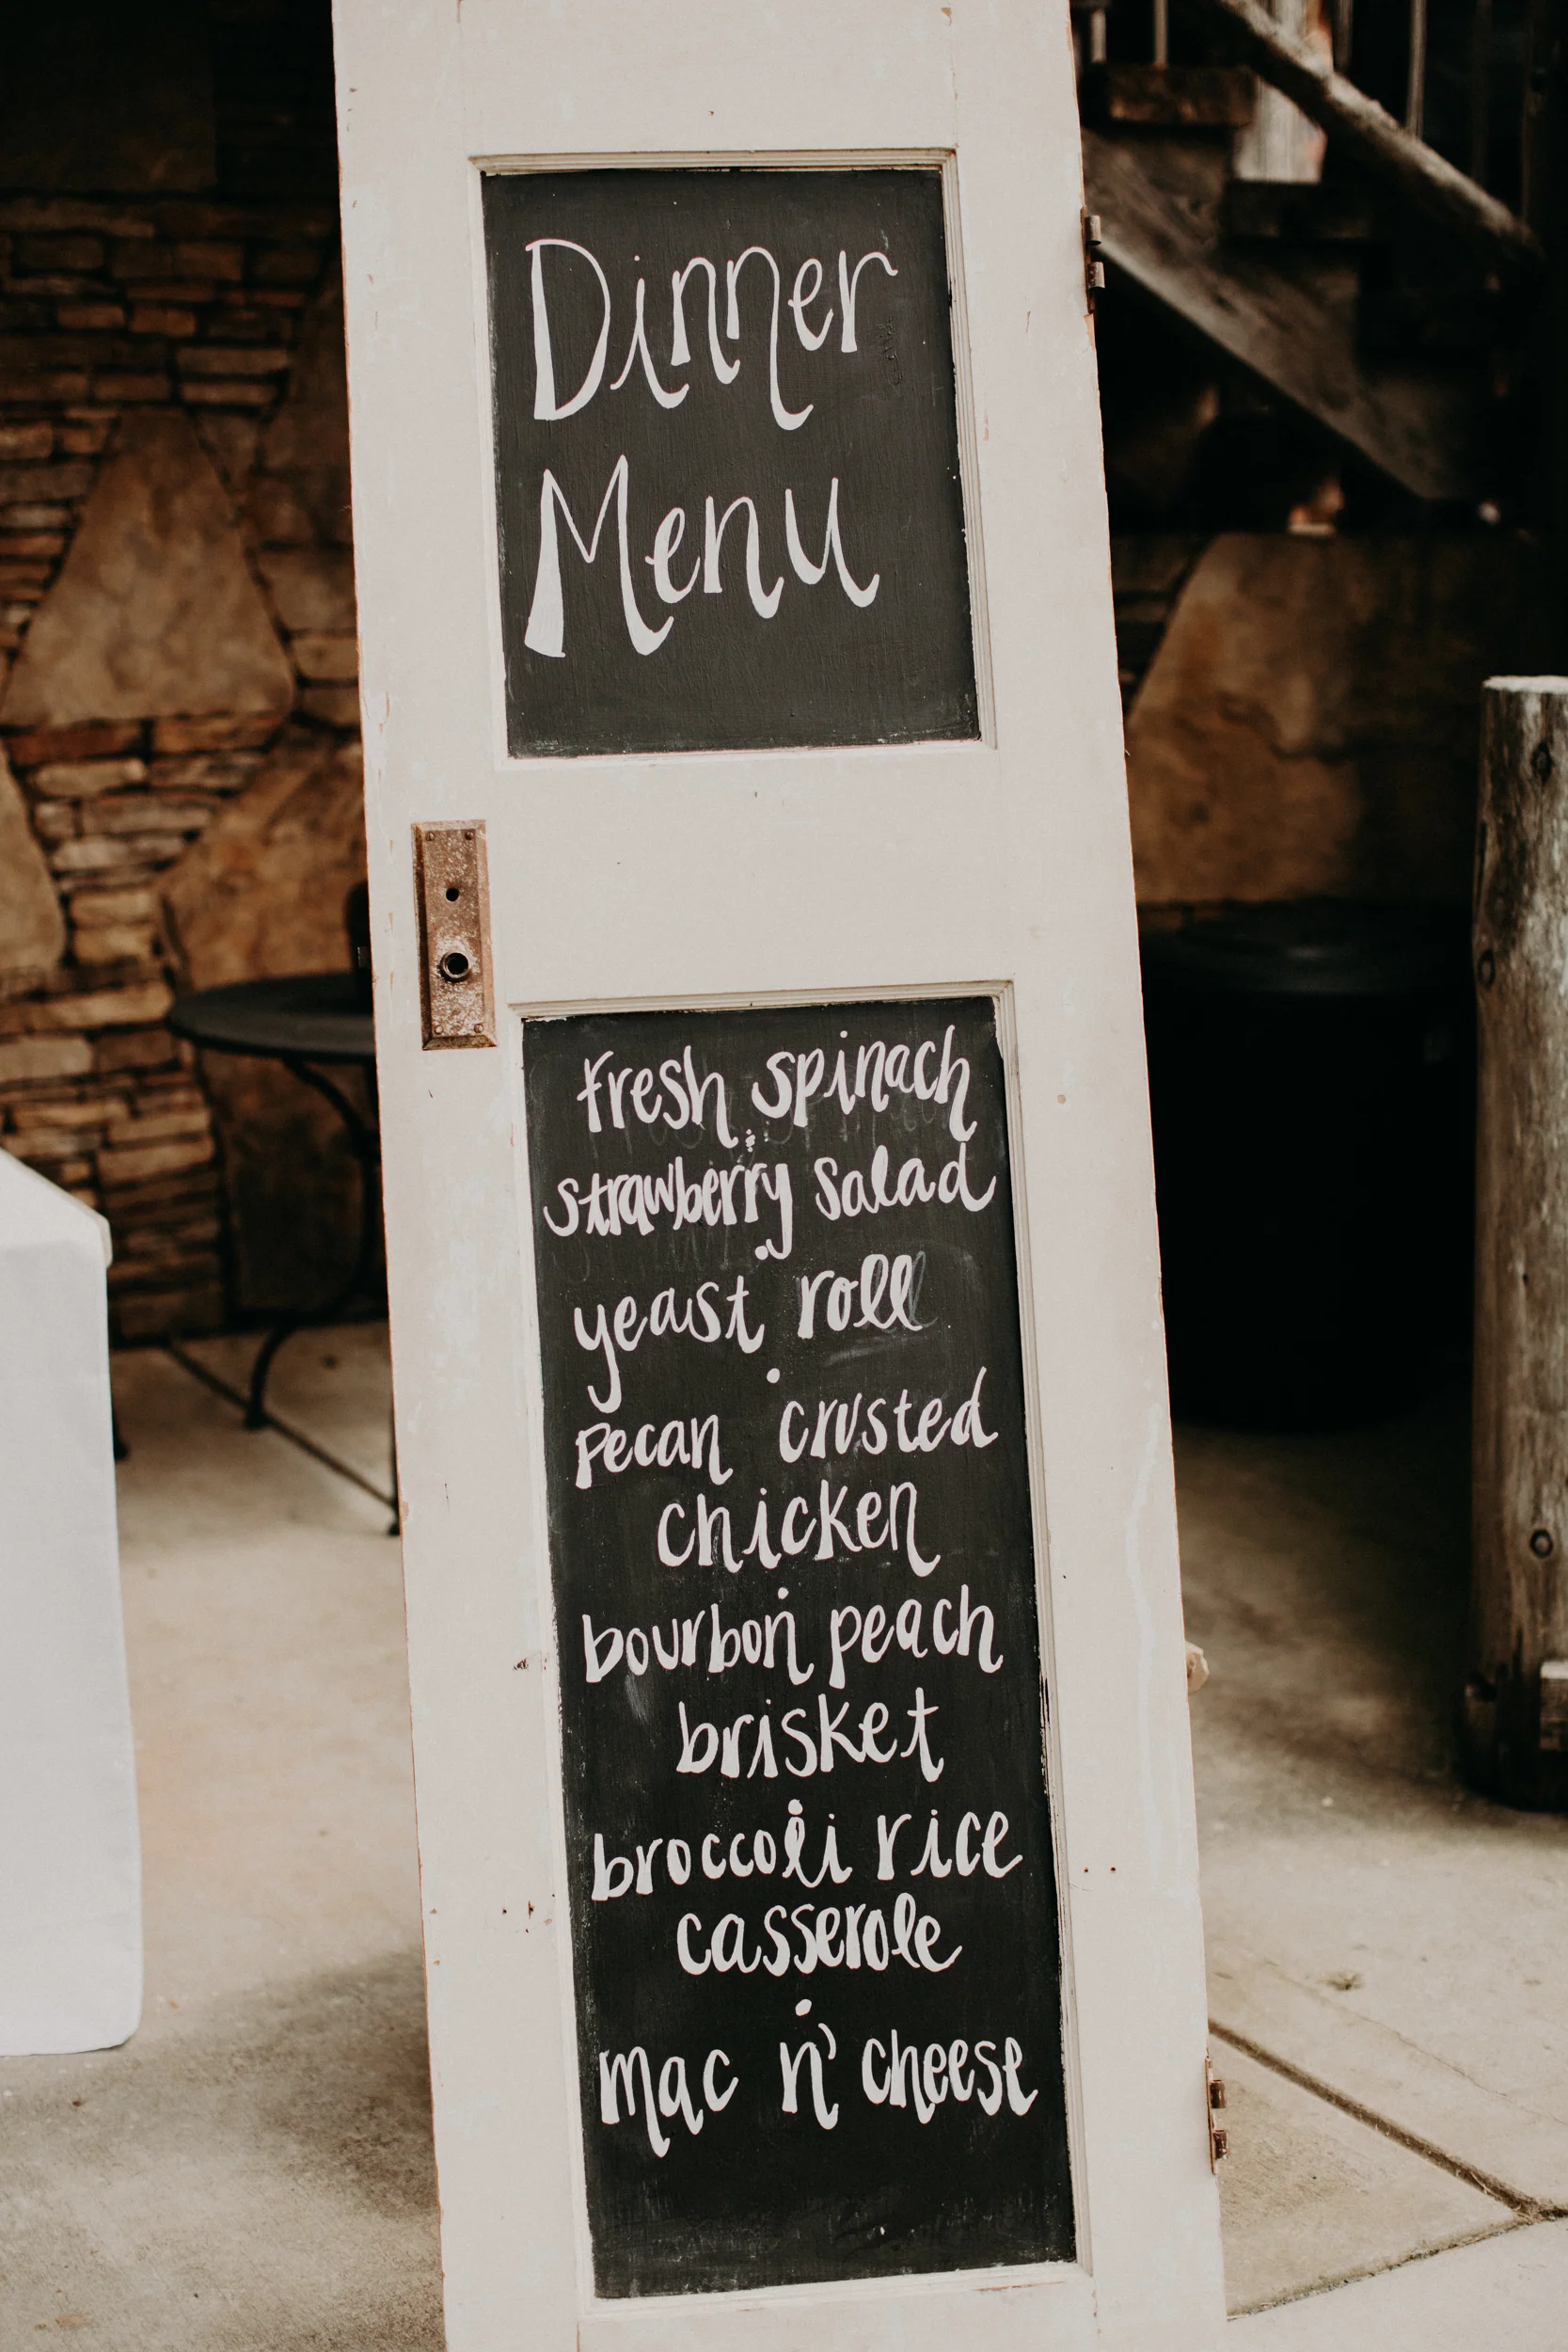 Dinner
Menu
fresh spinach
&
strawberry salad
•
yeast roll
•
pecan crusted
chicken
•
bourbon peach
brisket
•
broccoli rice
casserole
•
mac n' cheese